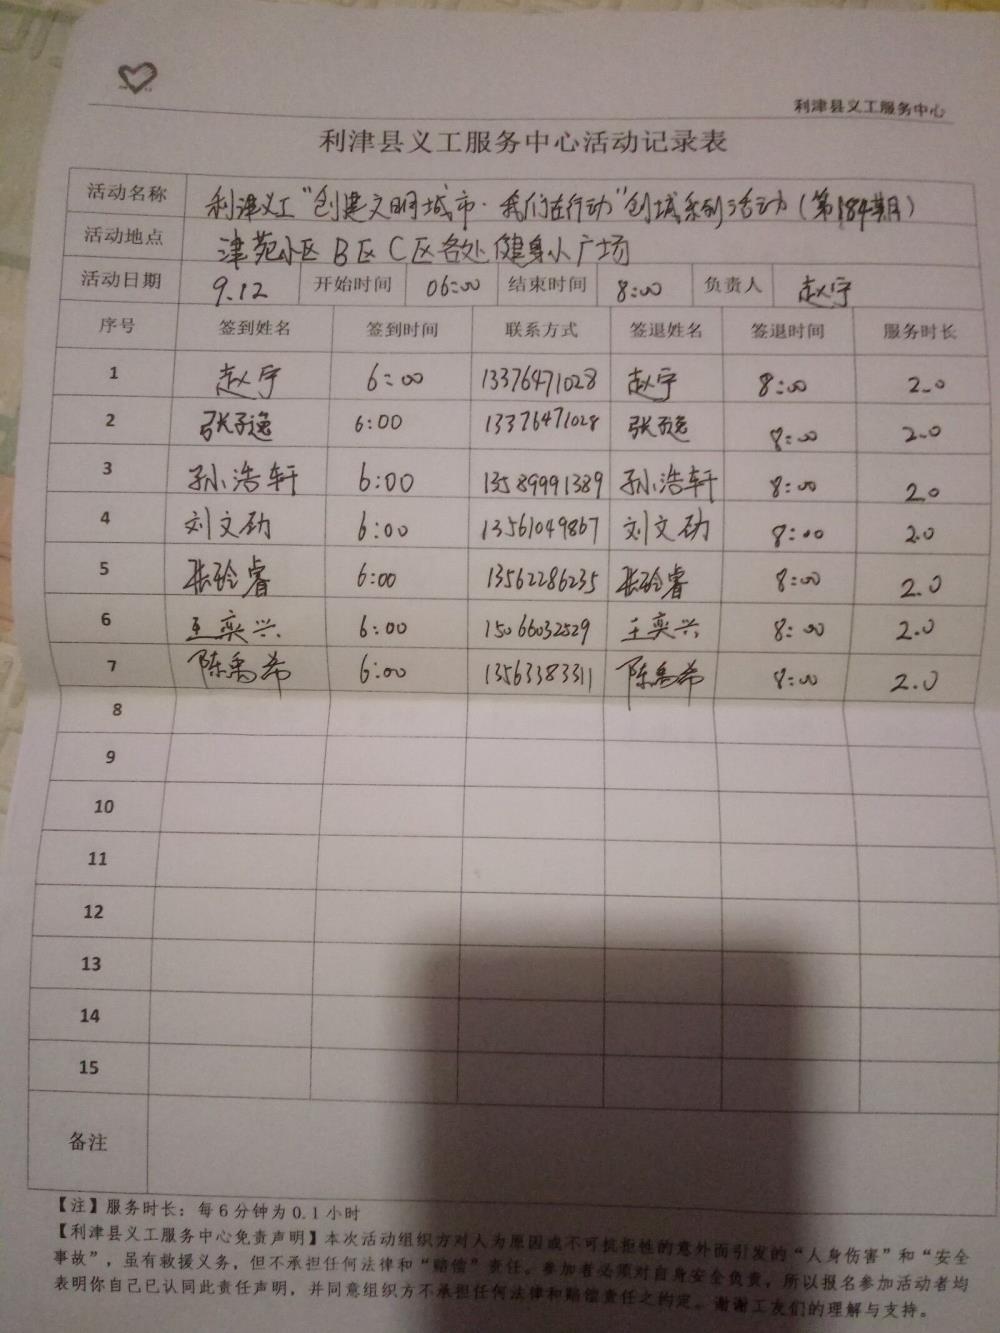 利津县义工服务中心
利津县义工服务中心活动记录表
活动名称 利津义工“创建文明城市·我们在行动”创城系列活动(第184期)
活动地点 津苑小区B区C区各处健身小广场
活动日期 9.12 开始时间 06:00 结束时间 8:00 负责人 赵宁
序号 签到姓名 签到时间 联系方式 签退姓名 签退时间 服务时长
1 赵宁 6:00 13376471028 赵宁 8:00 2.0
2 张子逸 6:00 13376471028 张子逸 8:00 2.0
3 孙浩轩 6:00 13589991389 孙浩轩 8:00 2.0
4 刘文劭 6:00 13561049867 刘文劭 8:00 2.0
5 张 睿 6:00 13562286235 张 睿 8:00 2.0
6 王奕兴 6:00 15066032529 王奕兴 8:00 2.0
7 陈禹希 6:00 13563383311 陈禹希 8:00 2.0
8
9
10
11
12
13
14
15
备注
【注】服务时长:每6分钟为0.1小时
【利津县义工服务中心免责声明】本次活动组织方对人为原因或不可抗拒性的意外而引发的“人身伤害”和“安全
事故”,虽有救援义务,但不承担任何法律和“赔偿”责任。参加者必须对自身安全负责,所以报名参加活动者均
表明你自己已认同此责任声明,并同意组织方不承担任何法律和赔偿责任之约定。谢谢工友们的理解与支持。